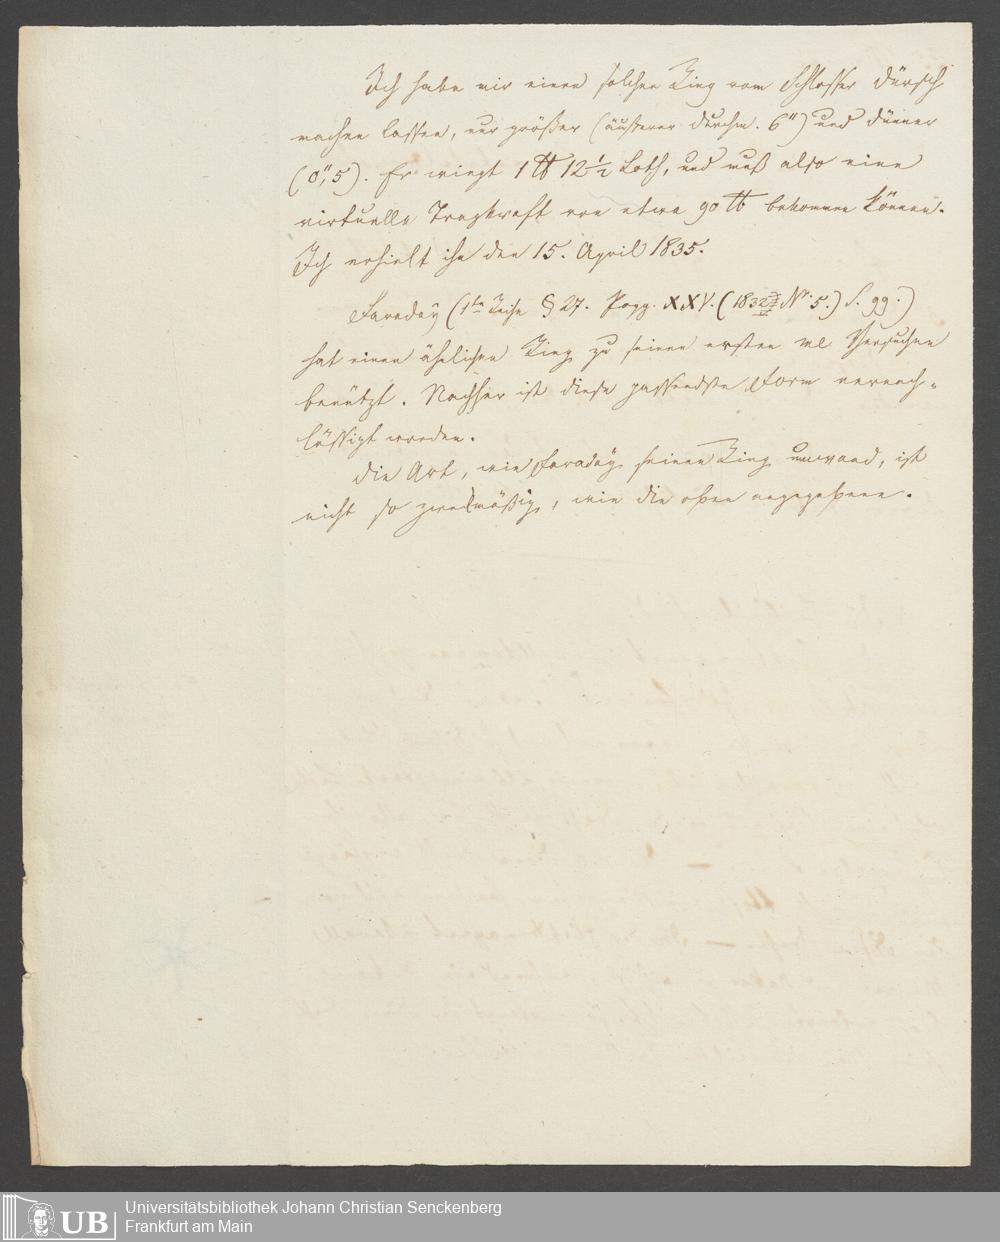 Ich habe mir einen solchen Ring vom Schlosser Dürsch
machen lassen, nur größer (äußerer Durchm. 6") und dünner
(0",5). Er wiegt 1 ℔ 12 1/2 Loth, und muß also eine
virtuelle Tragkraft von etwa 90 ℔ bekommen können.
Ich erhielt ihn den 15. April 1835.
Faraday (1te Reihe § 27. Pogg. XXV. (1832 Nr. 5.) S. 99.)
hat einen ähnlichen Ring zu seinen ersten Versuchen
benützt. Nachher ist diese passendste Form vernach-
lässigt worden.
Die Art, wie Faraday seinen Ring umwand, ist
nicht so zweckmäßig, wie die oben angegebene.
UB
Universitätsbibliothek Johann Christian Senckenberg
Frankfurt am Main